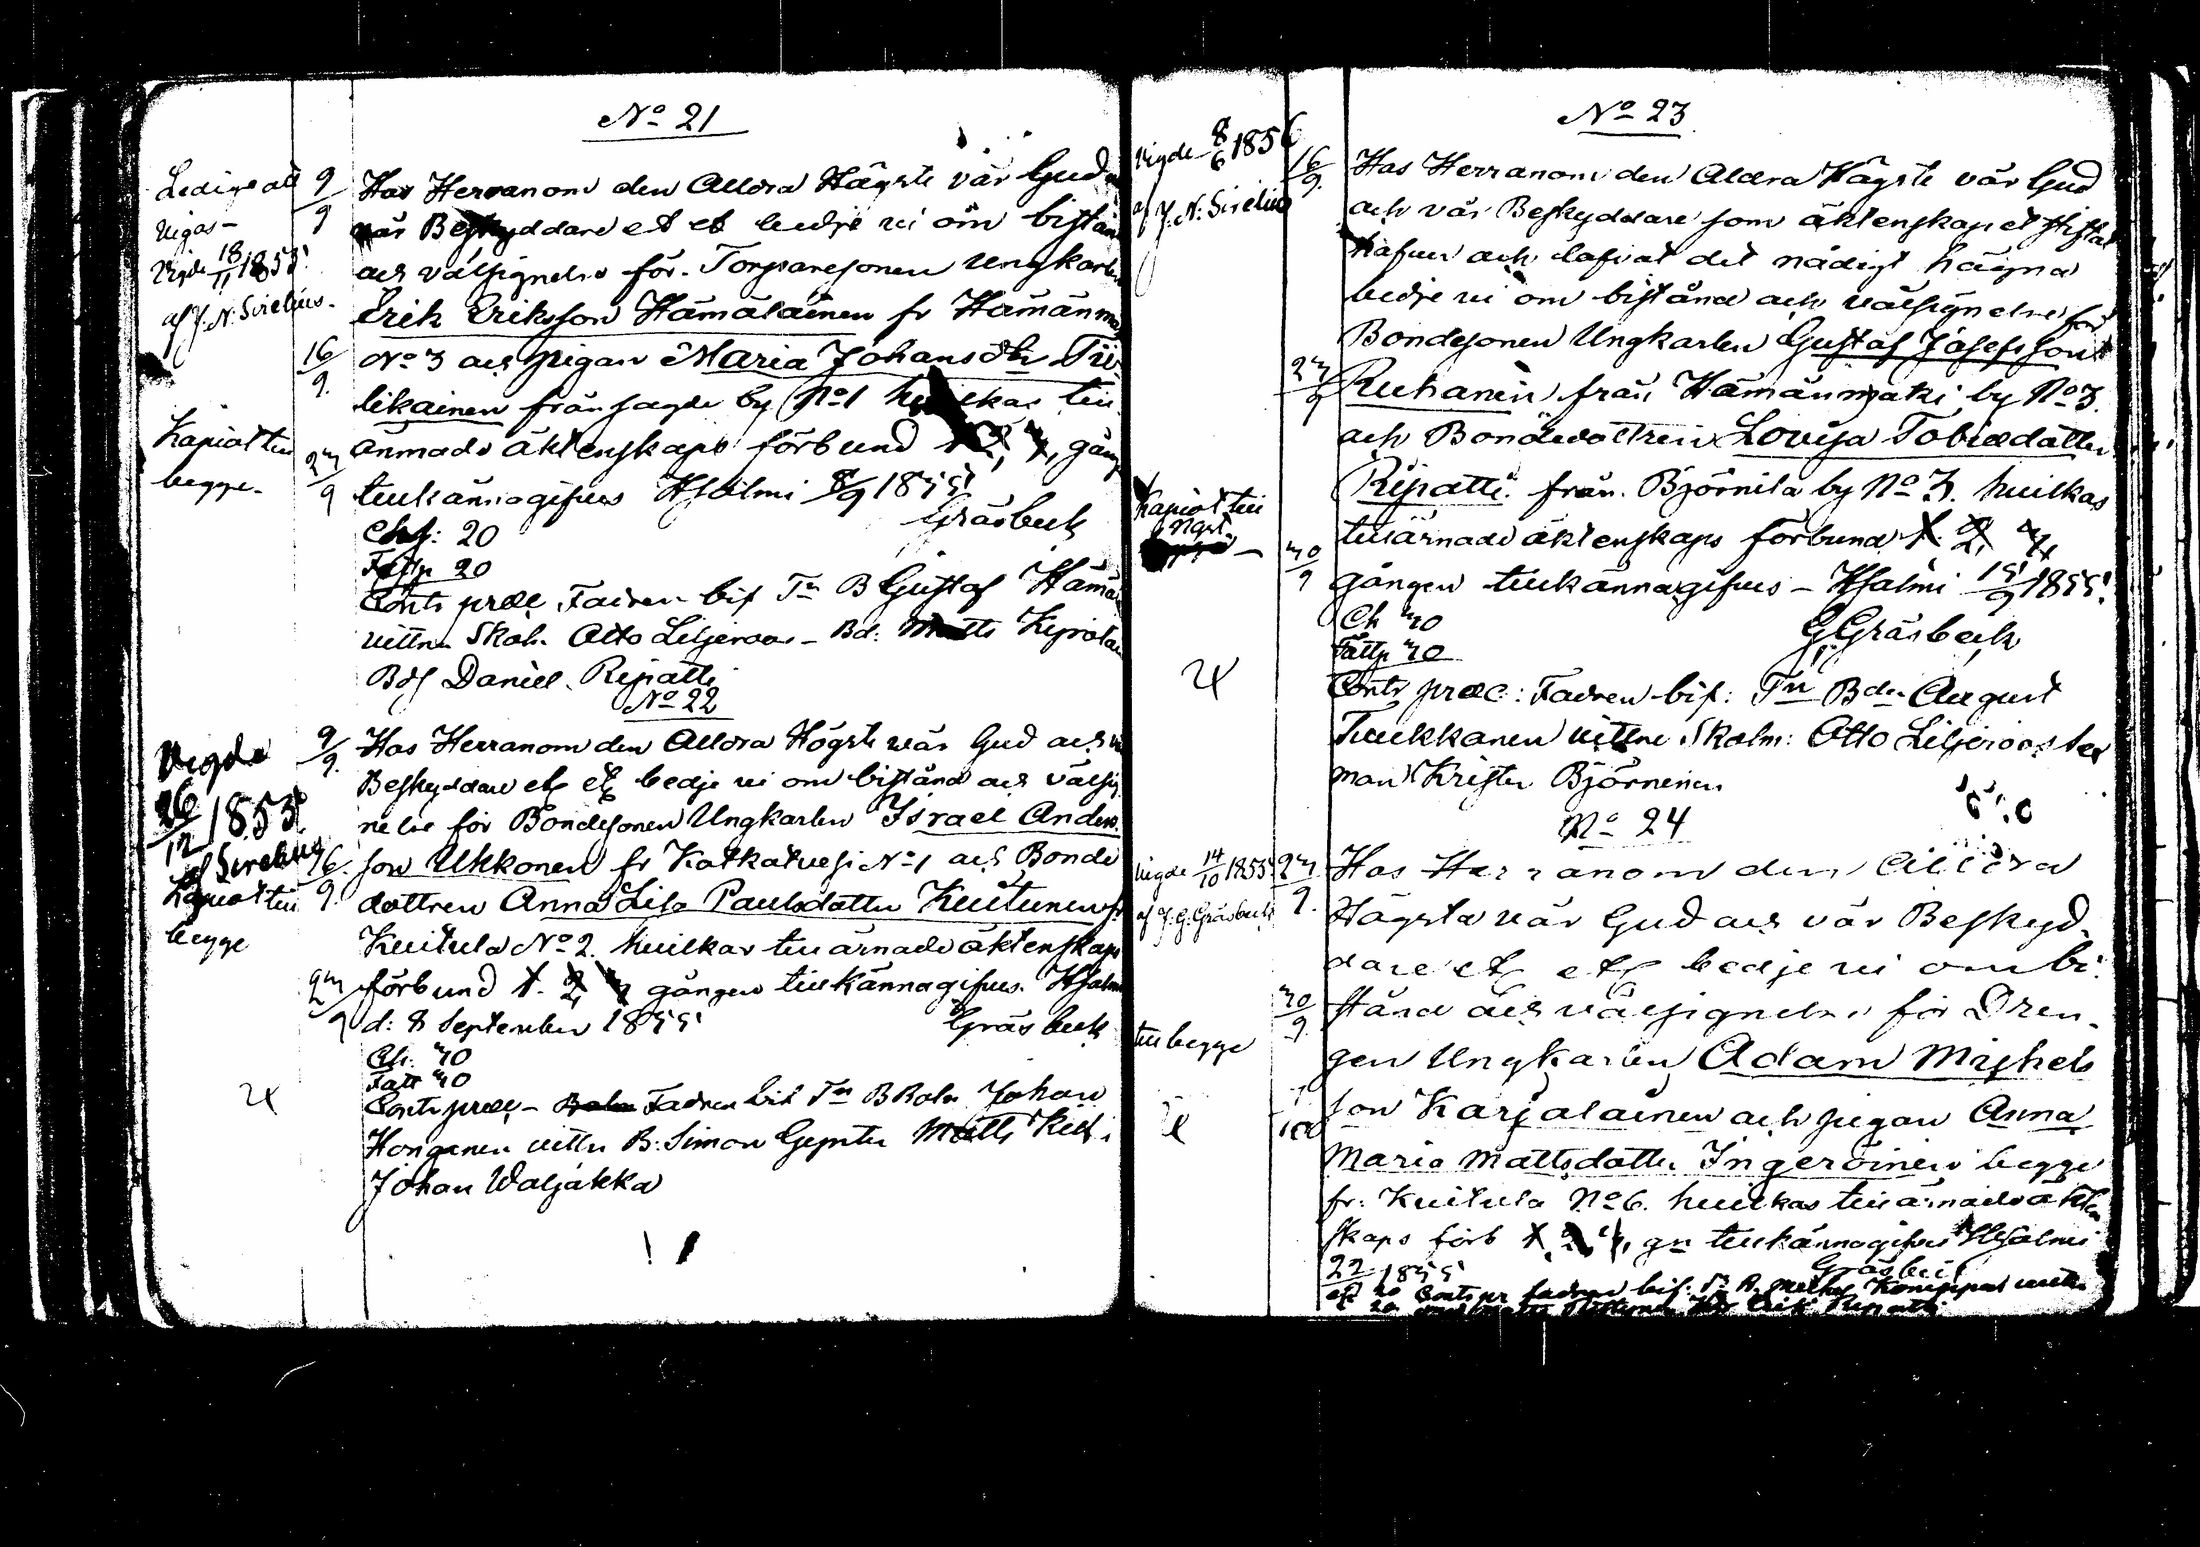 No 21
Ledige att
vigas –
Vigde 18/11 1855.
af J. N. Sirelius.
Kapiot till
begge.
9/9
16/9.
23/9
Hos Herranom den Alldra Högste vår Gud
vår Beskyddare et et bedje vi om bistån
och välsignelse för Torparesonen Ungkarlen
Erik Eriksson Hämäläinen fr Hämänma
No 3 och pigan Maria Johansdtr Tii-
likainen från sagde by No 1 hvilkas till
ärnade äktenskaps förbund 1, 2, 3, gång
tillkännagifves Hjalmi 8/9 1855
Gräsbeck
Ch: 20
Fattp 20
Contr præc. Fadren bif Tn B Gustaf Hämä
vittn Skolm Otto Liljeroos – Bd: Matts
Bds Daniel Ripatti
No 22
Vigde
26/12 1855.
af Sirelius
Kapiot till
begge
9/9.
16/9.
23/9
Hos Herranom den Alldra Högste vår Gud och v
Beskyddare etc etc bedje vi om bistånd och välsig
nelse för Bondesonen Ungkarlen Israel Anders
son Ukkonen fr Kotkatvesi No 1 och Bonde
dottren Anna Lisa Paulsdotter Kuitunen fr
Kuitula No 2. hvilkas tillärnade äktenskaps
förbund 1. 2, 3 gången tillkännagifves. Hjalmi
d: 8 September 1855
Gräsbeck
Ch: 30
Fatt 30
Contr præc – Fadren bif Tn B Johan
Honganen vittn B. Simon Matts
Johan Waljakka
No 23
Vigde 8/6 1856
af J. N. Sirelius
Kapiot till
16/9.
23/9
30/9
Hos Herranom den Alldra Högste vår Gud
och vår Beskyddare som äktenskapet stiftat
hafver och lofvat det nådigt hägna
bedje vi om bistånd och välsignelse för
Bondesonen Ungkarlen Gustaf Josefsson
Ruhanen från Hämänmäki by No 3.
och Bondedottren Lovisa Tobiedotter
Ripatti från Björnila by No 3. hvilkas
tillärnade äktenskaps förbund 1. 2, 3,
gången tillkännagifves – Hjalmi 15/9 1855.
Ch 30
G. Gräsbeck
Fattp 30
Contr præc: Fadren bif: Tn Bdn August
Tuukkanen vittne Skolm: Otto Liljeroos
man Krister Björninen
No 24
Vigde 14/10 1855
af J. G. Gräsbeck
till begge
23/9.
30/9
Hos Herranom den Alldra
Högsta vår Gud och vår Beskyd-
dare etc etc bedje vi om bi-
stånd och välsignelse för Dren-
gen Ungkarlen Adam Michels
son Karjalainen och pigan Anna
Maria Mattsdotter Ingeroinen begge
fr: Kuitula No 6. hvilkas tillärnade äkten
skaps förb 1, 2, 3, gn tillkännagifves Hjalmi
22 1855
Gräsbeck